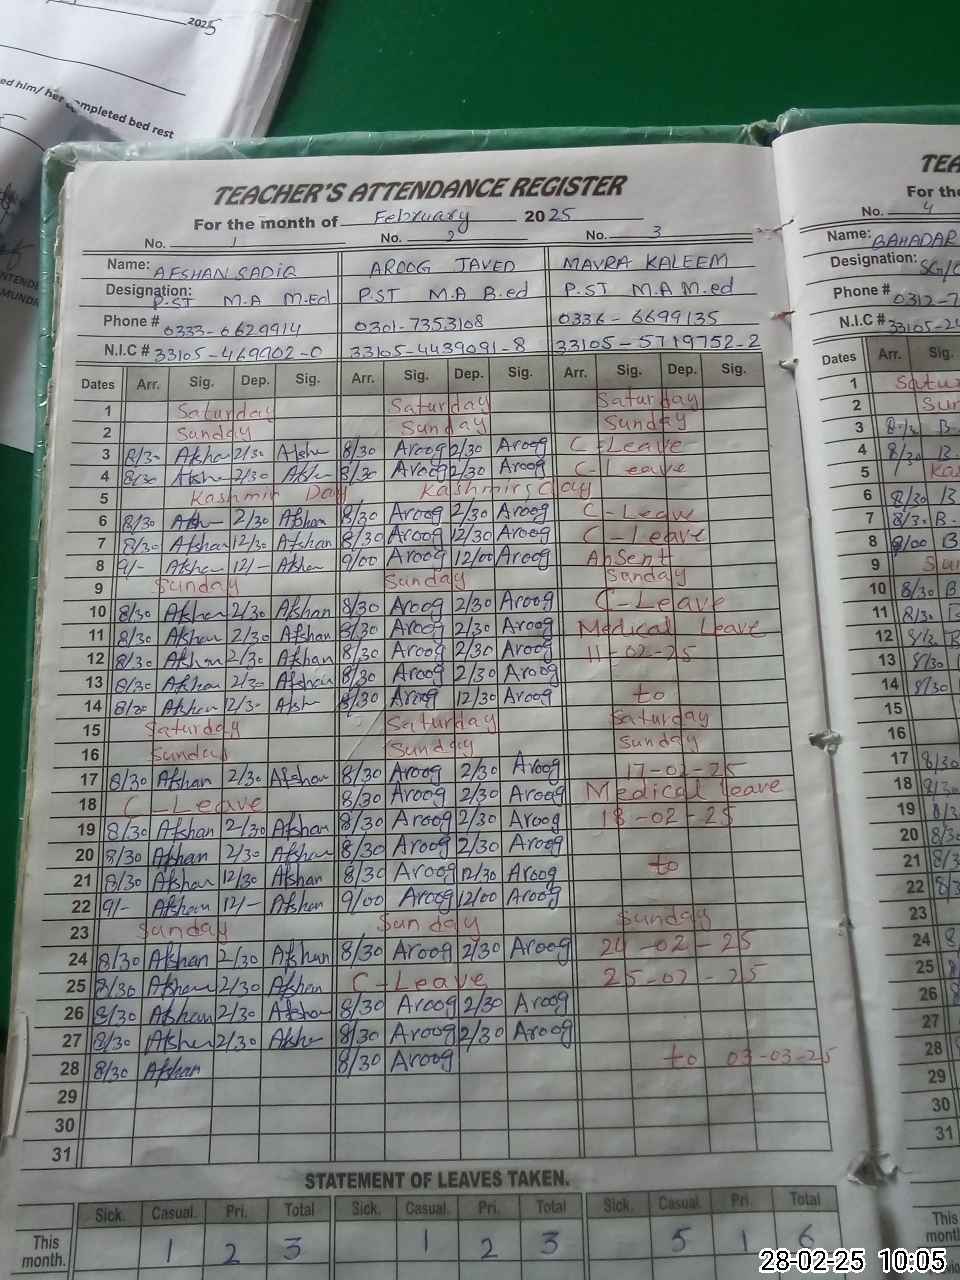 2025
ed him/ her completed bed rest
TEACHER'S ATTENDANCE REGISTER
For the month of February 2025
No. 1 No. 2 No. 3
Name: AFSHAN SADIQ AROOG JAVED MAVRA KALEEM
Designation: P.ST M.A M.Ed P.ST M.A B.ed P.ST M.A M.ed
Phone # 0333-6629914 0301-7353108 0336-6699135
N.I.C # 33105-469902-0 33105-4439091-8 33105-5719752-2
Dates Arr. Sig. Dep. Sig. Arr. Sig. Dep. Sig. Arr. Sig. Dep. Sig.
1 Saturday Saturday Saturday
2 Sunday Sunday Sunday
3 8/30 Afshan 2/30 Afshan 8/30 Aroog 2/30 Aroog C-Leave
4 8/30 Afshan 2/30 Afshan 8/30 Aroog 2/30 Aroog C-Leave
5 Kashmir Day Kashmirs day
6 8/30 Afshan 2/30 Afshan 8/30 Aroog 2/30 Aroog C-Leave
7 8/30 Afshan 12/30 Afshan 8/30 Aroog 12/30 Aroog C-Leave
8 9/- Afshan 12/- Afshan 9/00 Aroog 12/00 Aroog Absent
9 Sunday Sunday Sunday
10 8/30 Afshan 2/30 Afshan 8/30 Aroog 2/30 Aroog C-Leave
11 8/30 Afshan 2/30 Afshan 8/30 Aroog 2/30 Aroog Medical Leave
12 8/30 Afshan 2/30 Afshan 8/30 Aroog 2/30 Aroog 11-02-25
13 8/30 Afshan 2/30 Afshan 8/30 Aroog 2/30 Aroog
14 8/30 Afshan 12/30 Afshan 8/30 Aroog 12/30 Aroog to
15 Saturday Saturday Saturday
16 Sunday Sunday Sunday
17 8/30 Afshan 2/30 Afshan 8/30 Aroog 2/30 Aroog 17-02-25
18 C-Leave 8/30 Aroog 2/30 Aroog Medical leave
19 8/30 Afshan 2/30 Afshan 8/30 Aroog 2/30 Aroog 18-02-25
20 8/30 Afshan 2/30 Afshan 8/30 Aroog 2/30 Aroog
21 8/30 Afshan 12/30 Afshan 8/30 Aroog 12/30 Aroog to
22 9/- Afshan 12/- Afshan 9/00 Aroog 12/00 Aroog
23 Sunday Sunday Sunday
24 8/30 Afshan 2/30 Afshan 8/30 Aroog 2/30 Aroog 24-02-25
25 8/30 Afshan 2/30 Afshan C-Leave 25-02-25
26 8/30 Afshan 2/30 Afshan 8/30 Aroog 2/30 Aroog
27 8/30 Afshan 2/30 Afshan 8/30 Aroog 2/30 Aroog
28 8/30 Afshan 8/30 Aroog to 03-03-25
29
30
31
STATEMENT OF LEAVES TAKEN.
Sick. Casual. Pri. Total Sick. Casual. Pri. Total Sick. Casual. Pri. Total
This month. 1 2 3 1 2 3 5 1 6
TEA
For th
No. 4
Name: BAHADAR
Designation: SG/
Phone # 0312-7
N.I.C # 33105-2
Dates Arr. Sig.
1 Satu
2 Sun
3 8/30 B-
4 8/30 B.
5 Kas
6 8/30 B
7 8/30 B-
8 9/00 B
9 Sun
10 8/30 B
11 8/30
12 8/30 B
13 8/30
14 8/30
15
16
17 8/30
18 8/30
19 8/3
20 8/3
21 8/3
22 8/3
23
24 8
25 8
26 8
27
28
29
30
31
This
month
28-02-25 10:05